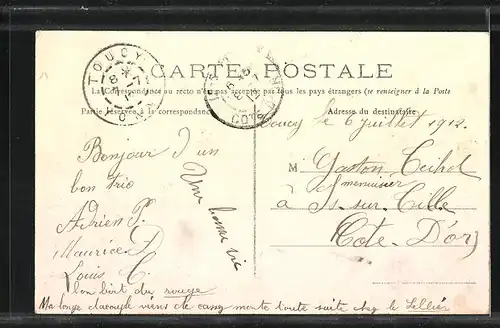 CARTE POSTALE
La Correspondance au recto n'est pas acceptée par tous les pays étrangers (se renseigner à la Poste
Partie réservée à la correspondance
Adresse du destinataire
TOUCY
Toucy le 6 Juillet 1912.
Bonjour d'un
bon trio
Adrien P.
Maurice D
Louis C
Une bonne vie
M Gaston
menuisier
à Is-sur-Tille
Côte D'or
bon du rouge
Ma viens de monte toute suite chez le Sellier